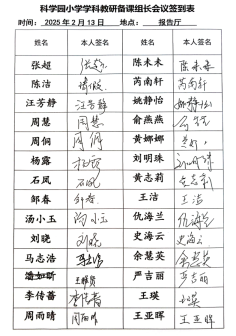 科学园小学学科教研备课组长会议签到表
时间： 2025年2月13日 地点： 报告厅
姓名 本人签名 姓名 本人签名
张超 张超 陈未未 陈未未
陈洁 陈洁 芮南轩 芮南轩
汪芳静 汪芳静 姚静怡 姚静怡
周慧 周慧 俞燕燕
周侗 周侗 黄娜娜
杨露 杨露 刘明珠 刘明珠
石凤 石凤 黄志莉
邹春 邹春 王洁 王洁
汤小玉 汤小玉 仇海兰 仇海兰
刘晓 刘晓 史海云 史海云
马志浩 马志浩 余慧英 余慧英
严吉丽 严吉丽
李传蓍 李传蓍 王瑛 王瑛
周雨晴 周雨晴 王亚晖 王亚晖